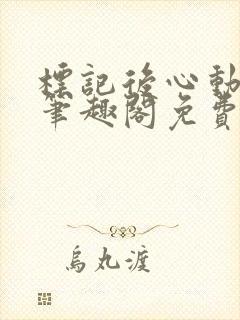 標記後心動
筆趣閣免費
烏丸渡